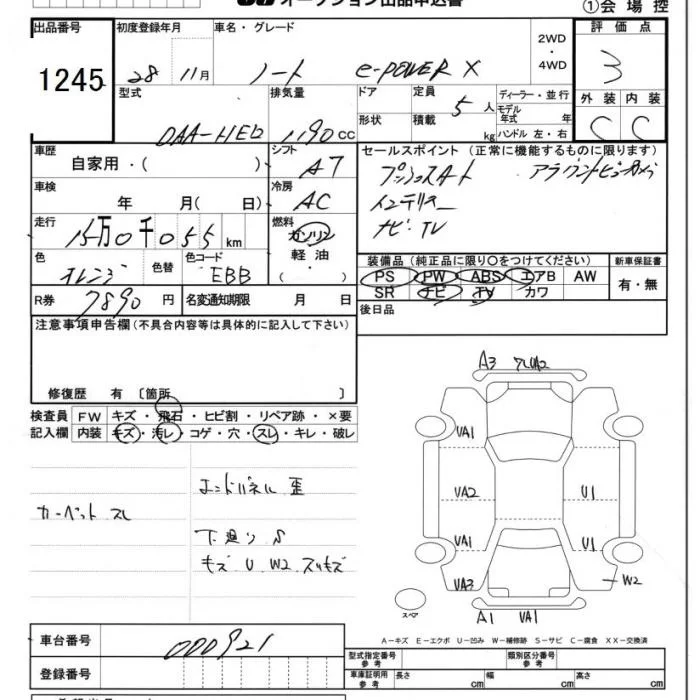 オークション出品申込書
①会場控
出品番号 初度登録年月 車名・グレード 評価点
1245
28 11月 ノート e-POWER X
2WD・4WD
3
型式 排気量 ドア 定員 5人 ディーラー・並行 外装 内装
DAA-HE12 1190 CC 形状 積載 kg モデル年式 年 C C
ハンドル 左・右
車歴 自家用・( ) シフト A7
セールスポイント (正常に機能するものに限ります)
プッシュスタート アラウンドビューカメラ
車検 年 月( 日) 冷房 AC
インテリキー
走行 15万0千055km 燃料 ガソリン 軽油・( )
ナビ・TV
色 オレンジ 色替 色コード EBB
装備品 (純正品に限り○をつけてください) 新車保証書
PS PW ABS エアB AW 有・無
SR ナビ TV カワ
R券 7890円 名変通知期限 月 日
後日品
注意事項申告欄 (不具合内容等は具体的に記入して下さい)
修復歴 有 〔箇所 〕
A3 アルVA2
検査員記入欄 FW キズ・飛石・ヒビ割・リペア跡・×要
内装 キズ・汚レ・コゲ・穴・スレ・キレ・破レ
VA1
エンドパネル 歪
VA2 U1
カーペット スレ
下廻り S
VA1 U1
キズ U W2 スリキズ
VA3 W2
スペア
A1 VA1
車台番号 000921
A-キズ E-エクボ U-凹み W-補修跡 S-サビ C-腐食 XX-交換済
型式指定番号 参考 類別区分番号 参考
登録番号
車庫証明用 参考 長さ cm 幅 cm 高さ cm